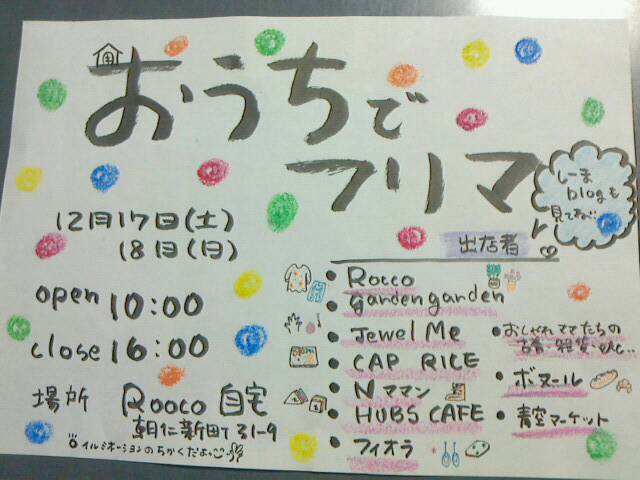 おうちで
フリマ
しーま
blogも
見てネ!
12月17日(土)
18日(日)
open 10:00
close 16:00
場所 Rooco 自宅
朝仁新町31-9
イルミネーションのちかくだよっ
出店者
• Rocco
• garden garden
• Jewel Me
• CAP RICE
• Nママン
• HUBS CAFE
• フィオラ
• おしゃれママたちの
古着・雑貨・etc...
• ボヌール
• 青空マーケット